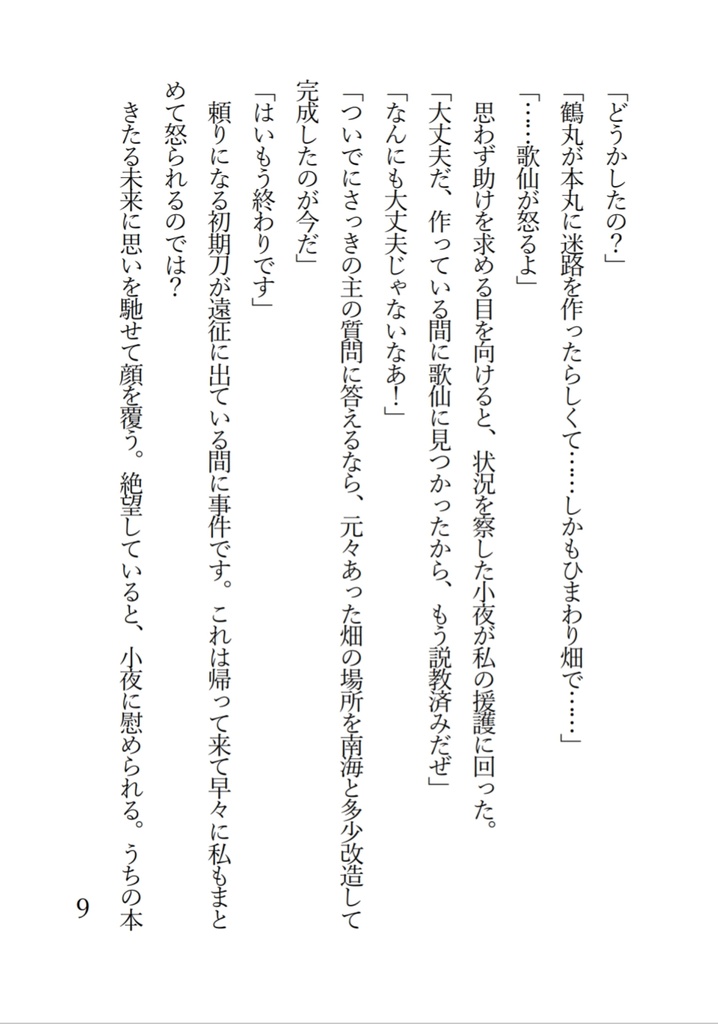 「どうかしたの？」
「鶴丸が本丸に迷路を作ったらしくて……しかもひまわり畑で……」
「……歌仙が怒るよ」
思わず助けを求める目を向けると、状況を察した小夜が私の援護に回った。
「大丈夫だ、作っている間に歌仙に見つかったから、もう説教済みだぜ」
「なんにも大丈夫じゃないなあ！」
「ついでにさっきの主の質問に答えるなら、元々あった畑の場所を南海と多少改造して
完成したのが今だ」
「はいもう終わりです」
頼りになる初期刀が遠征に出ている間に事件です。これは帰って来て早々に私もまと
めて怒られるのでは？
きたる未来に思いを馳せて顔を覆う。絶望していると、小夜に慰められる。うちの本
9